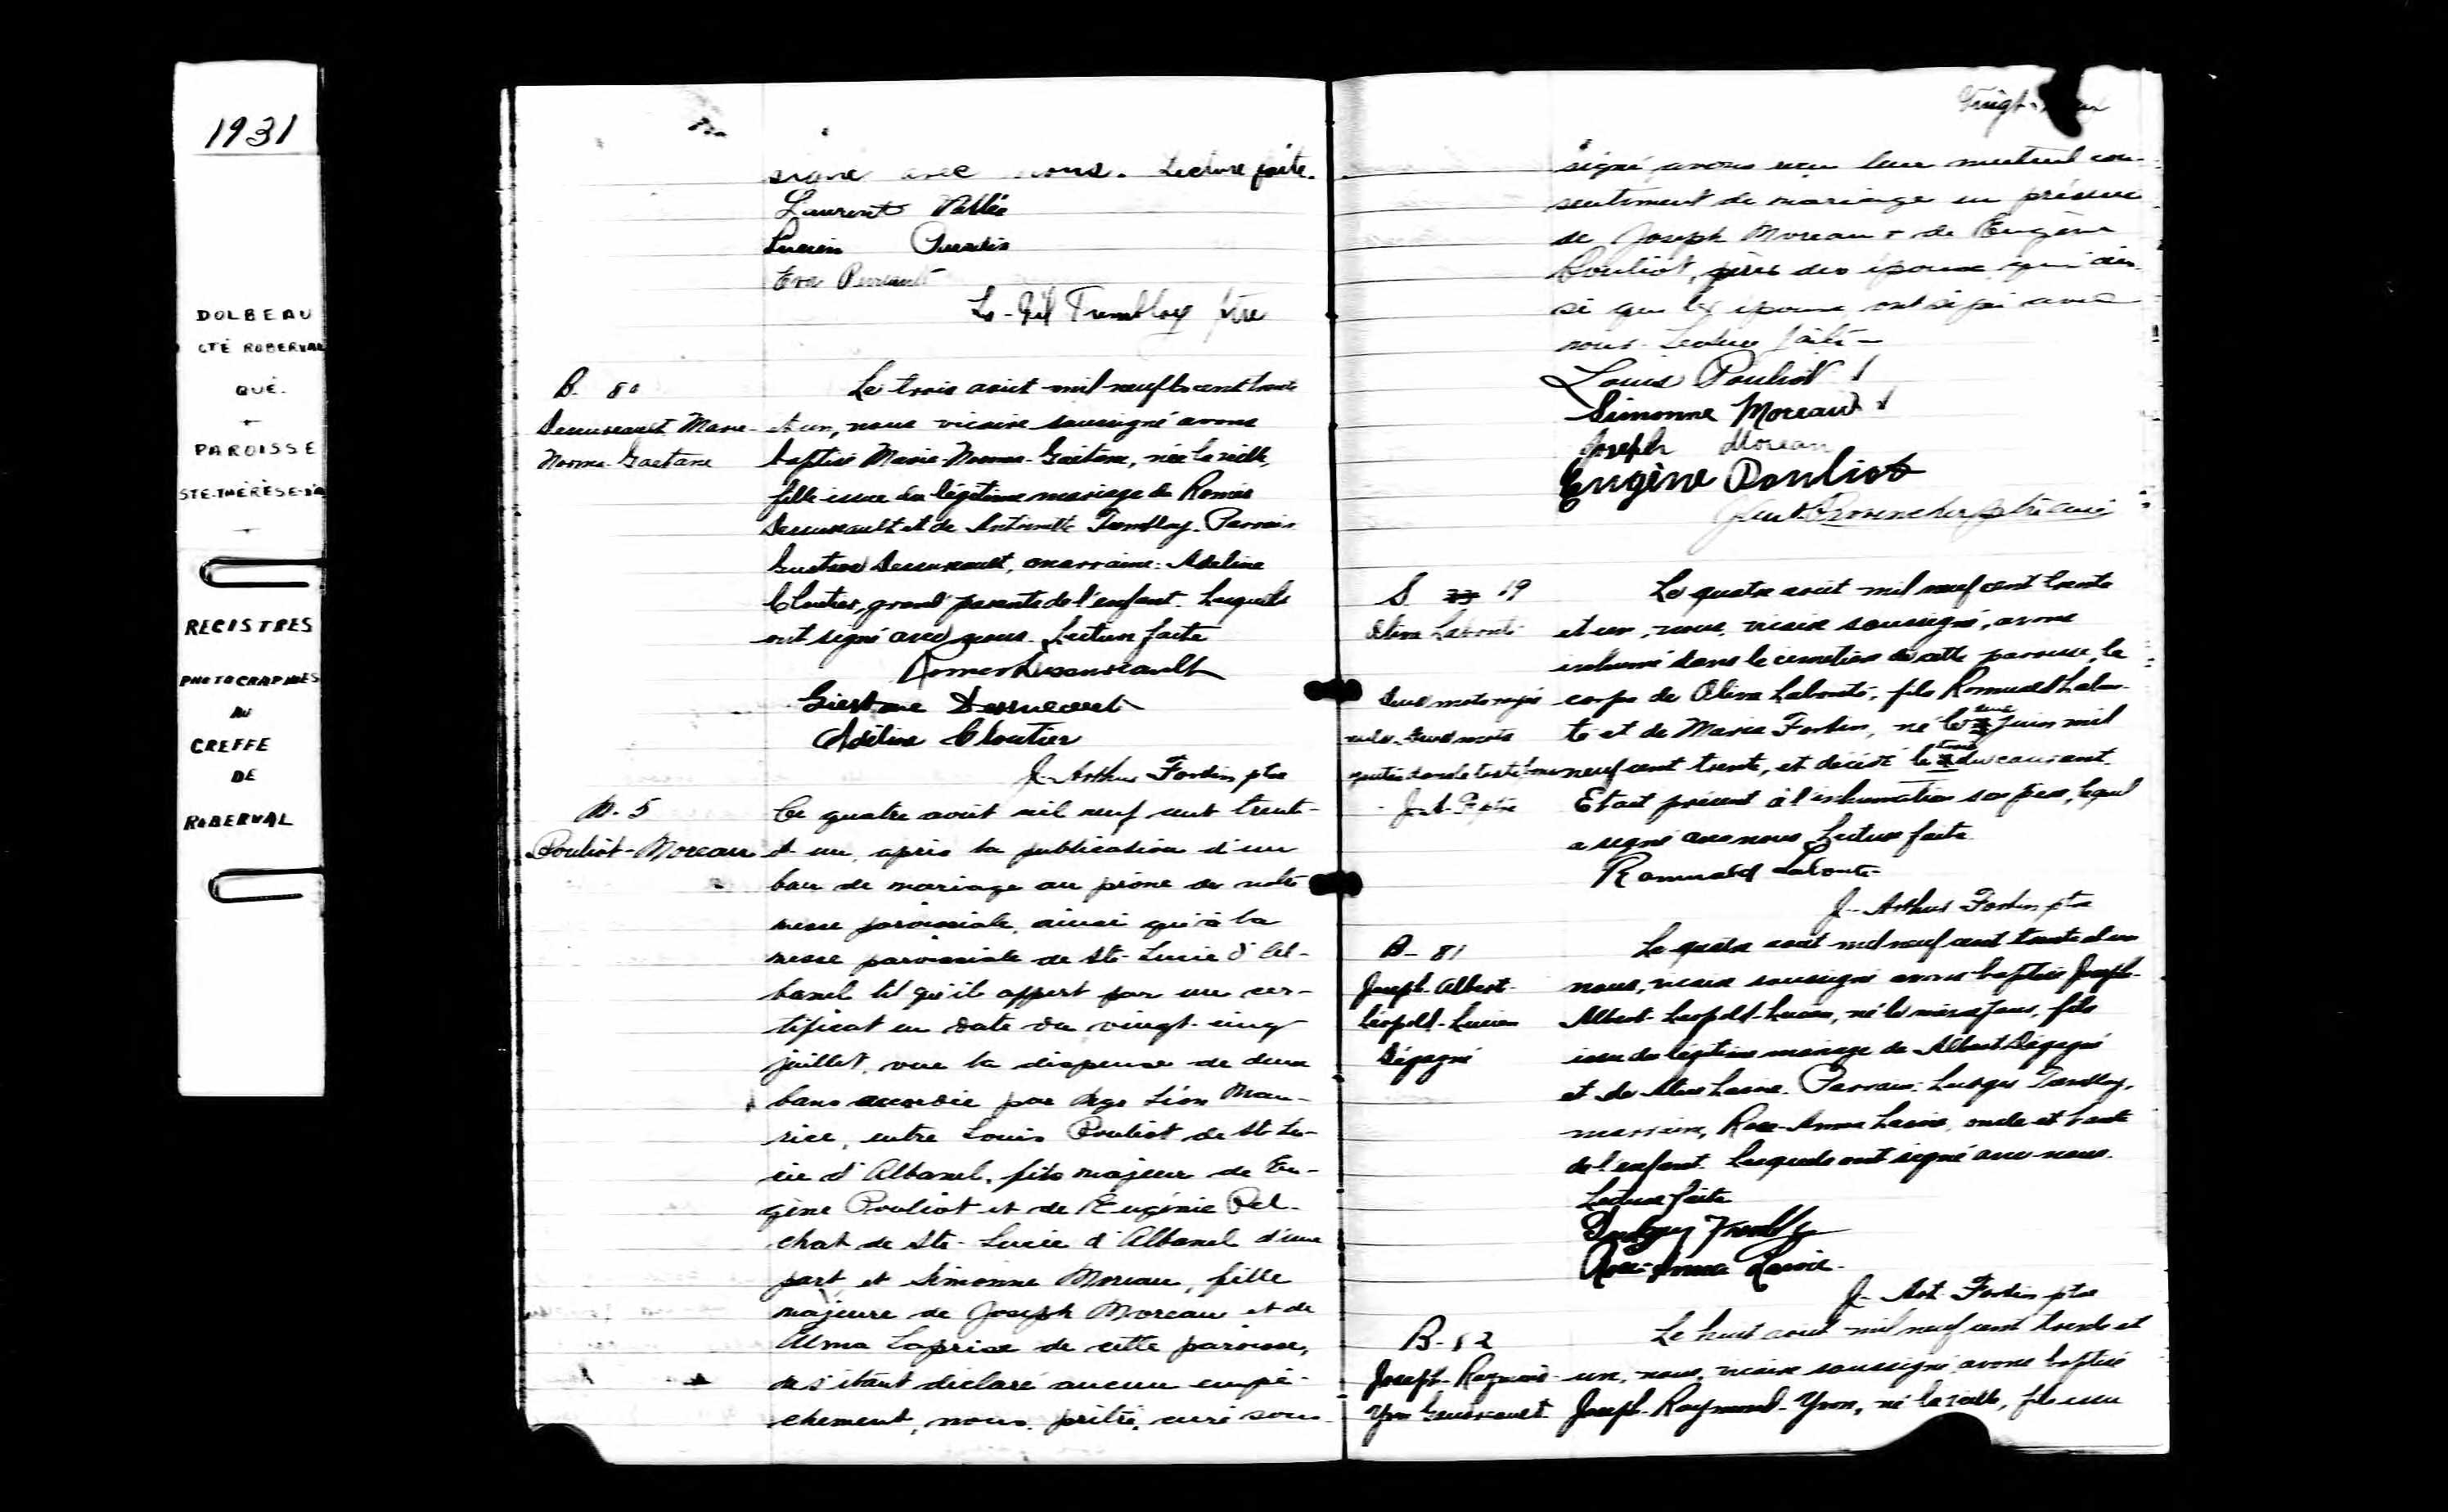 1931
DOLBEAU
CTÉ ROBERVAL
QUÉ.
PAROISSE
STE-THÉRÈSE-D'A
REGISTRES
PHOTOGRAPHIÉS
AU
GREFFE
DE
ROBERVAL
signé avec nous. Lecture faite.
Laurent Vallée
Lucien
Eva Perreault
Ls-Gil Tremblay ptre
B. 80
Marie-
Norma-Gaetane
Le trois août mil neuf cent trente
et un, nous vicaire soussigné avons
baptisé Marie-Norma-Gaétane, née la veille,
fille issue du légitime mariage de Roméo
et de Antoinette Tremblay. Parrain
Gustave marraine: Adeline
Cloutier, grand' parents de l'enfant. Lesquels
ont signé avec nous. Lecture faite
Adéline Cloutier
J-Arthur Fortin ptre
M. 5
Pouliot-Moreau
Ce quatre août mil neuf cent trente-
et un, après la publication d'un
ban de mariage au prône de notre
messe paroissiale, ainsi qu'à la
messe paroissiale de Ste-Lucie d'Al-
banel tel qu'il appert par un cer-
tificat en date du vingt-cinq
juillet, vue la dispense de deux
bans accordée par Mgr Léon Mau-
rice, entre Louis Pouliot de Ste Lu-
cie d'Albanel, fils majeur de Eu-
gène Pouliot et de Eugénie Pel-
chat de Ste-Lucie d'Albanel d'une
part, et Simonne Moreau, fille
majeure de Joseph Moreau et de
Alma Laprise de cette paroisse,
ne s'étant déclaré aucun empê-
chement, nous, prêtre, curé sous-
Vingt-
signé avons reçu leur mutuel con-
sentement de mariage en présence
de Joseph Moreau & de Eugène
Pouliot, pères des époux qui ain-
si que les époux ont signé avec
nous. Lecture faite-
Louis Pouliot
Simonne Moreau
Joseph Moreau
Eugène Pouliot
Provencher ptre curé
S. 19
Oliva Labonté
Le quatre août mil neuf cent trente
et un, nous, vicaire soussigné, avons
inhumé dans le cimetière de cette paroisse, le
corps de Oliva Labonté, fils Romuald Labon-
té et de Maria Fortin, né le deux juin mil
neuf cent trente, et décédé le trois du courant.
Deux mots rayés
nuls. Deux mots
ajoutés dans le texte bons
J-A-F ptre
Etait présent à l'inhumation son père, lequel
a signé avec nous Lecture faite
Romuald Labonté
J-Arthur Fortin ptre
B-81
Joseph-Albert-
Léopold-Lucien
Dégagné
Le quatre août mil neuf cent trente et un
nous, vicaire soussigné avons baptisé Joseph-
Albert-Léopold-Lucien, né le même jour, fils
issu du légitime mariage de Albert Dégagné
et de Lavoie. Parrain: Tremblay,
marraine, Rose-Anna Lavoie, oncle et tante
de l'enfant. Lesquels ont signé avec nous.
Lecture faite
Rose-Anna Lavoie
J-Art. Fortin ptre
B-82
Joseph-Raymond-
Yvon
Le huit août mil neuf cent trente et
un, nous, vicaire soussigné, avons baptisé
Joseph-Raymond-Yvon, né la veille, fils issu